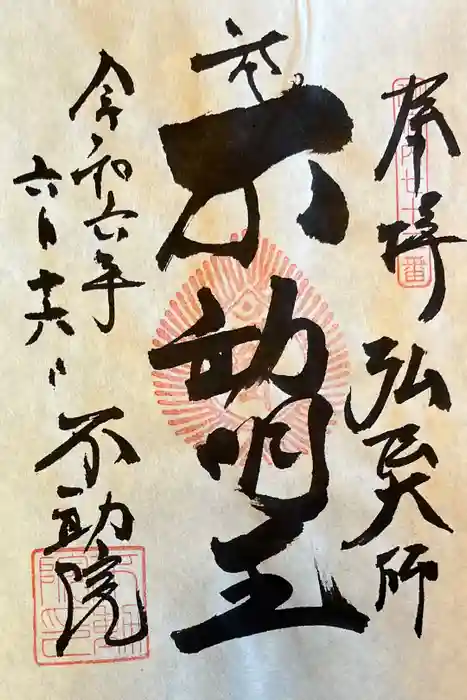 奉拝
弘法大師
不動明王
令和六年
六月十六日
不動院